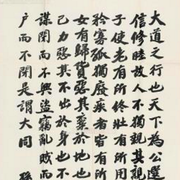 大道之行也天下為公選
信修睦故人不獨親其親
子使老有所終壯有所用
矜寡孤獨廢疾者皆有所
女有歸貨惡其棄於地也
己力惡其不出於身也不
謀閉而不興盜竊亂賊而
戶而不閉是謂大同 孫